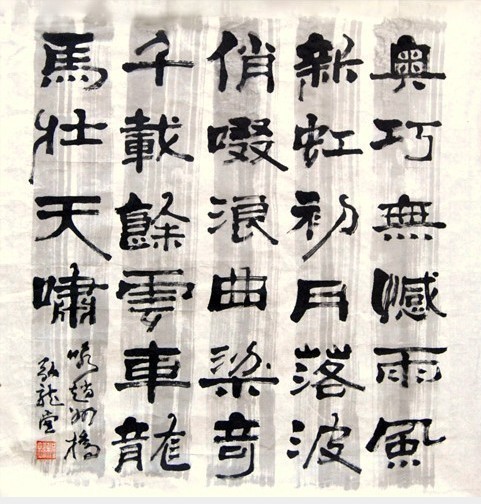 奧巧無憾雨風
新虹初月落波
俏啜浪曲梁奇
千載餘雲車龍
馬壮天嘯
咏趙州橋
龍堂